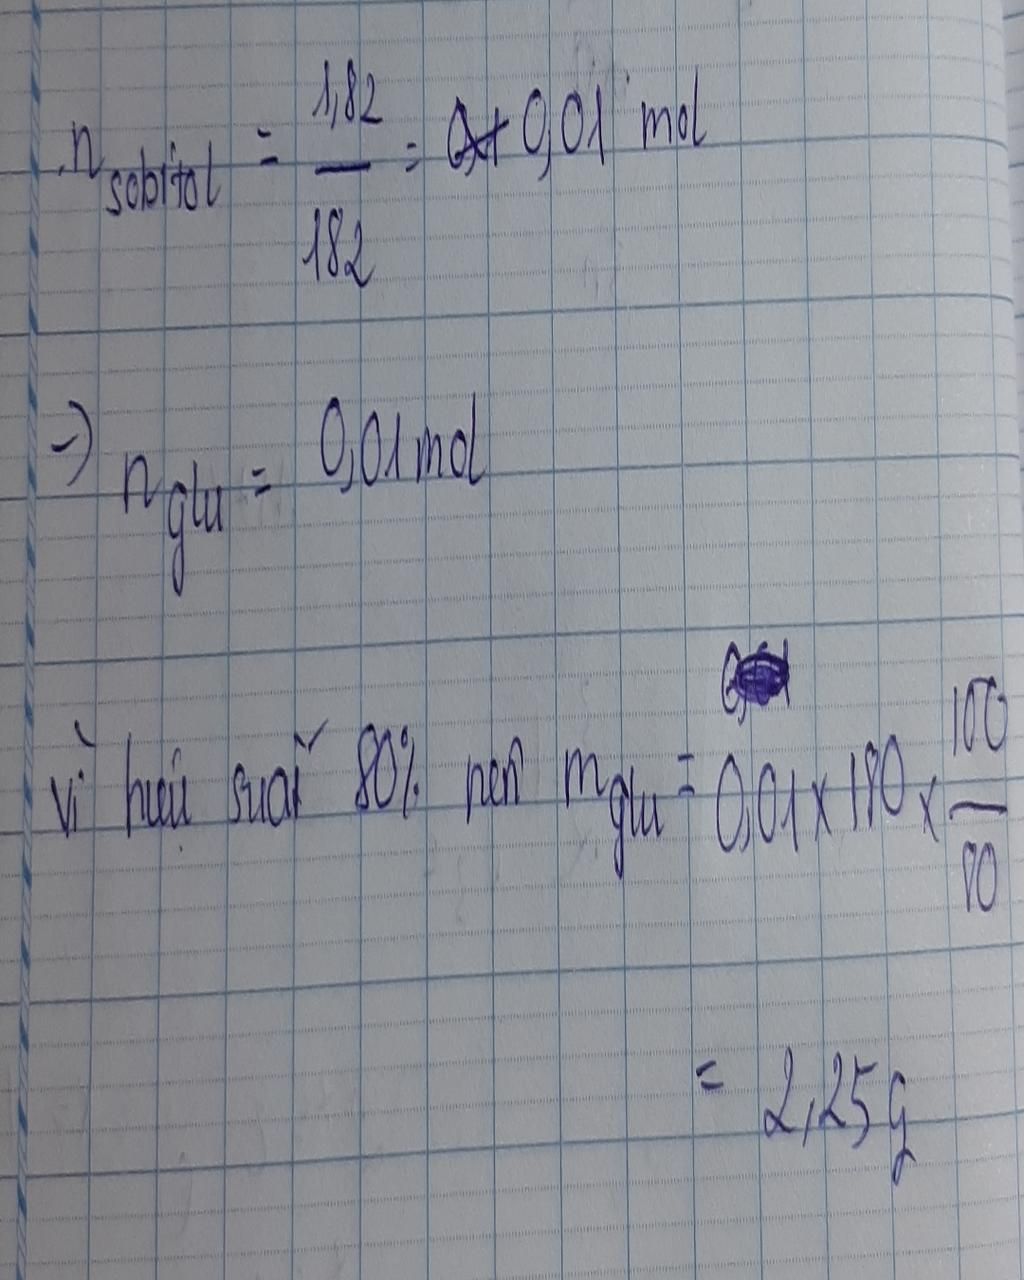 n sobitol = 1,82 / 182 = 0,01 mol
=> n glu = 0,01 mol
Vì hiệu suất 80% nên m glu = 0,01 x 180 x 100 / 80
= 2,25 g